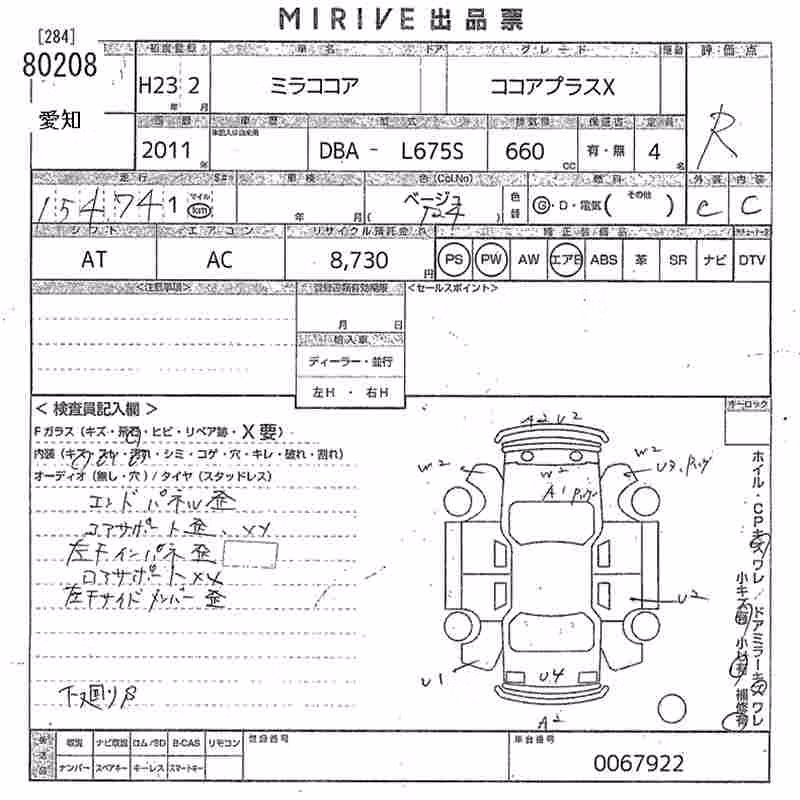 MIRIVE 出品票
[284]
80208
愛知
初度登録 車名 ドア グレード 評価点
H23 2 ミラココア ココアプラスX R
年 月
車歴 型式 排気量 保証書 定員
2011 年 DBA - L675S 660 CC 有・無 4 名
走行 車検 色(Col.No) 燃料 外装 内装
154741 マイル km 年 月 ベージュ ( T24 ) 色替 G・D・電気( その他 ) C C
シフト エアコン リサイクル預託金 純正装備品
AT AC 8,730 円 PS PW AW エアB ABS 革 SR ナビ DTV
<注意事項> <セールスポイント>
月 日
輸入車
ディーラー・並行
左H ・ 右H
オーロック
< 検査員記入欄 >
Fガラス (キズ・飛石・ヒビ・リペア跡・X要)
内装 (キズ・スレ・汚れ・シミ・コゲ・穴・キレ・破れ・割れ)
オーディオ (無し・穴) / タイヤ (スタッドレス)
エンドパネル歪
コアサポート歪、XX
左Fインパネ歪
ロアサポートXX
左Fサイドメンバー歪
下廻りS
A2 U2
W2
W2
W2
A1
U3
U2
U1
U4
A2
ホイル・CPキズワレ/ドアミラーキズワレ
小キズ有 小凹有 補修有
取説 ナビ取説 ロム/SD B-CAS リモコン 登録番号 車台番号
ナンバー スペアキー キーレス スマートキー
0067922